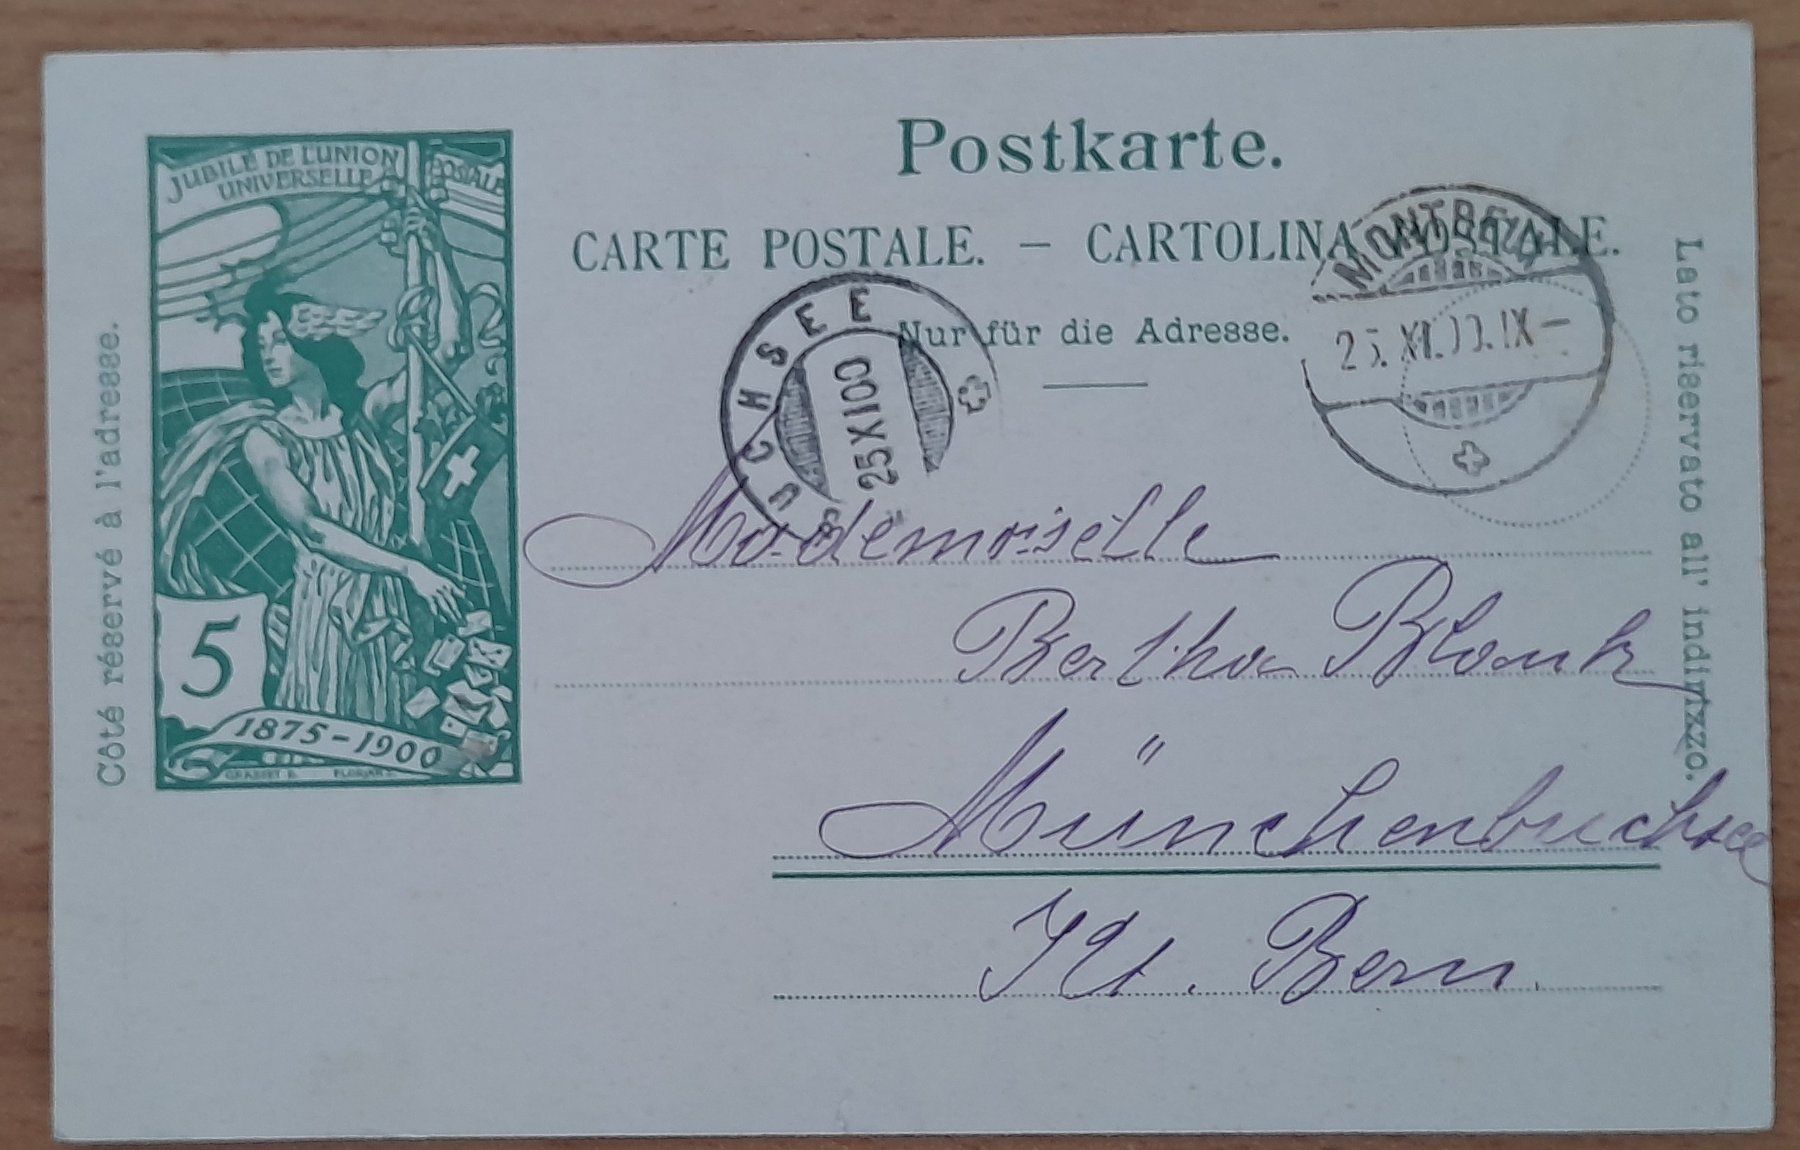 Postkarte.
CARTE POSTALE. – CARTOLINA POSTALE.
Nur für die Adresse.
Côté réservé à l'adresse.
Lato riservato all' indirizzo.
JUBILÉ DE L'UNION POSTALE
UNIVERSELLE
5
1875-1900
GRASSET D. FLORIAN
BUCHSEE
25 XI 00
25. XI. 00. IX –
Mademoiselle
Bertha Blank
Münchenbuchsee
Kt. Bern.